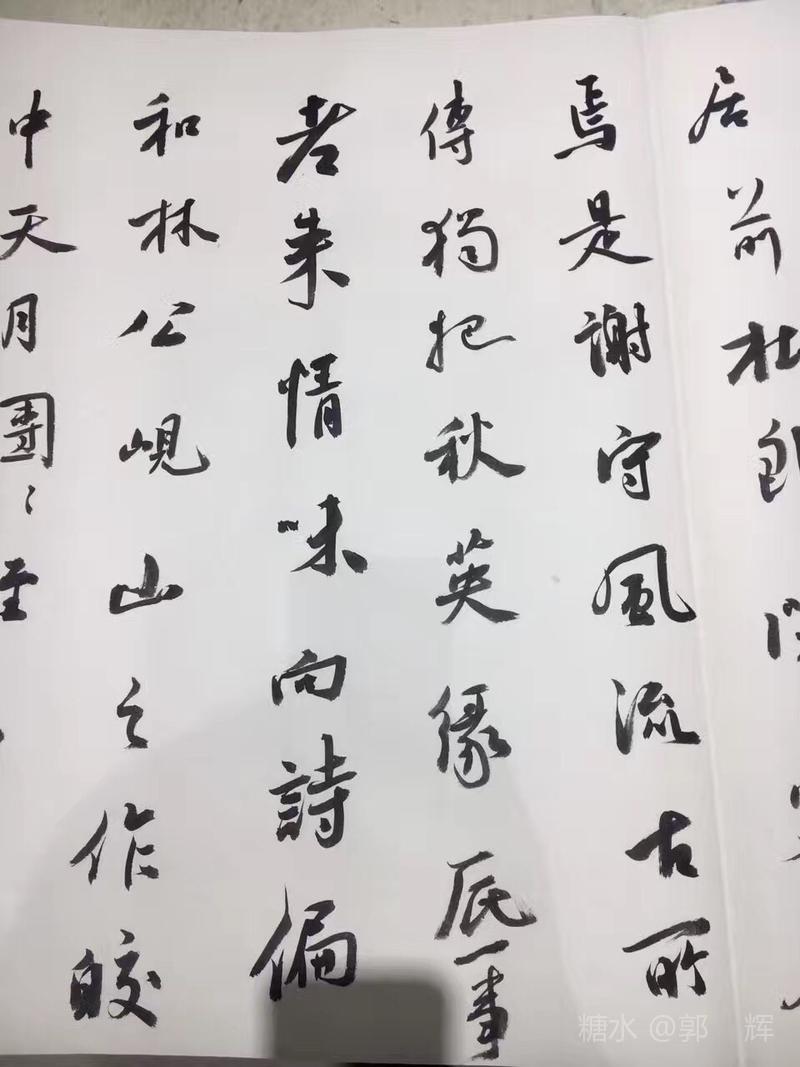 居前杜郎
焉是謝守風流古所
傳獨把秋英緣底事
老來情味向詩偏
和林公峴山之作皎
中天月團〻
糖水 @郭 辉